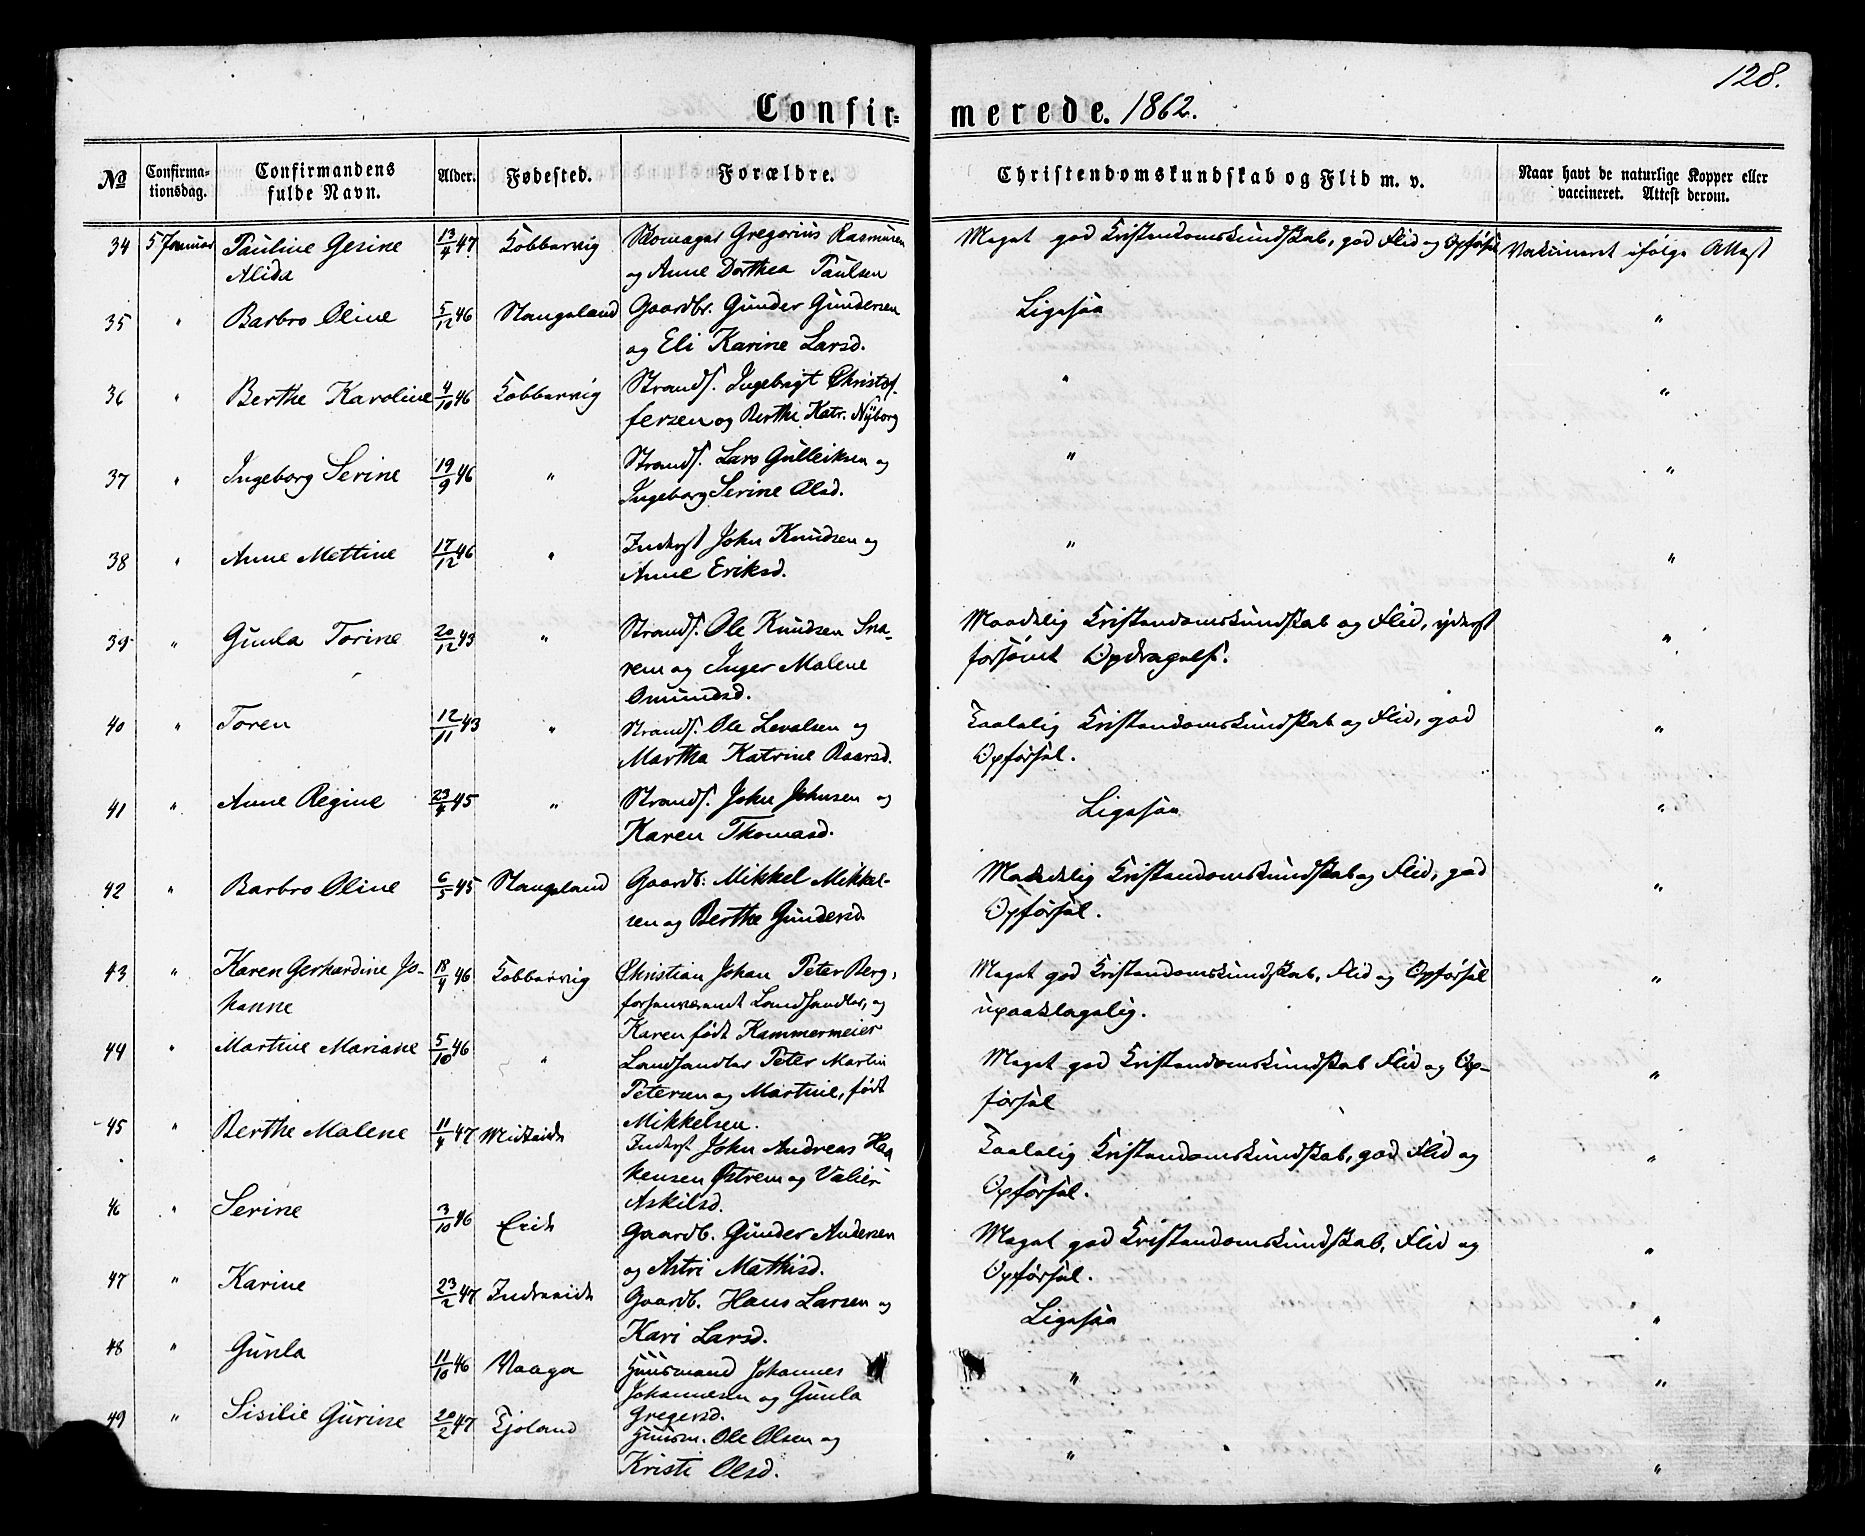 128.
Confir= merede. 1862.
No Confirma-tionsdag. Confirmandens fulde Navn. Alder. Fødested. Forældre. Christendomskundskab og Flid m. v. Naar havt de naturlige Kopper eller vaccineret. Attest derom.
34 5 Januar Pauline Gesine 13/4 47 Kobbervig Skomager Gregorius Rasmusen Meget god Kristendomskundskab, god Flid og Opførsel Vakcineret ifølge Attest
Alida og Anne Dorthea Paulsen
35 " Barbro Oline 5/12 46 Stangeland Gaardbr. Gunder Gundersen Ligesaa "
og Eli Karine Larsd.
36 " Berthe Karoline 4/10 46 Kobbervig Strands. Ingebrigt Christof- " "
fersen og Berthe Katr. Nyborg
37 " Ingeborg Serine 19/9 46 " Strands. Lars Gulleiksen og " "
Ingeborg Serine Olsd.
38 " Anne Mettine 17/12 46 " Inderst John Knudsen og " "
Anne Eriksd.
39 " Gunla Torine 20/12 43 " Strands. Ole Knudsen Sna- Maadelig Kristendomskundskab og Flid, yderst "
rem og Inger Malene forsømt Opdragelse.
Omundsd.
40 " Toren 12/11 43 " Strands. Ole Levalsen og Taalelig Kristendomskundskab og Flid, god "
Martha Katrine Roarsd. Opførsel.
41 " Anne Regine 23/4 45 " Strands. John Johnsen og Ligesaa "
Karen Thomasd.
42 " Barbro Oline 6/5 45 Stangeland Gaardb. Mikkel Mikkel- Maadelig Kristendomskundskab og Flid, god "
sen og Berthe Gundersd. Opførsel.
43 " Karen Gerhardine Jo- 18/4 46 Kobbervig Christian Johan Peter Berg, Meget god Kristendomskundskab, Flid og Opførsel "
hanne forhenværende Landhandler, og upaaklagelig.
Karen født Kammermeier
44 " Martine Mariane 5/10 46 " Landhandler Peter Martin Meget god Kristendomskundskab Flid og Op- "
Petersen og Martine, født førsel
Mikkelsen.
45 " Berthe Malene 11/4 47 Inderst John Andreas Haa Taalelig Kristendomskundskab, god Flid og "
kensen Østrem og Opførsel.
Askilsd.
46 " Serine 3/10 46 Eide Gaardb. Gunder Andersen Meget god Kristendomskundskab, Flid og "
og Astri Mathisd. Opførsel.
47 " Karine 23/2 47 Indreeide Gaardb. Hans Larsen og Ligesaa "
Kari Larsd.
48 " Gunla 11/10 46 Vaage Huusmand Johannes " "
Johannesen og Gunla
Gregersd.
49 " Sisilie Gurine 20/2 47 Husm. Ole Olsen og " "
Kristi Olsd.